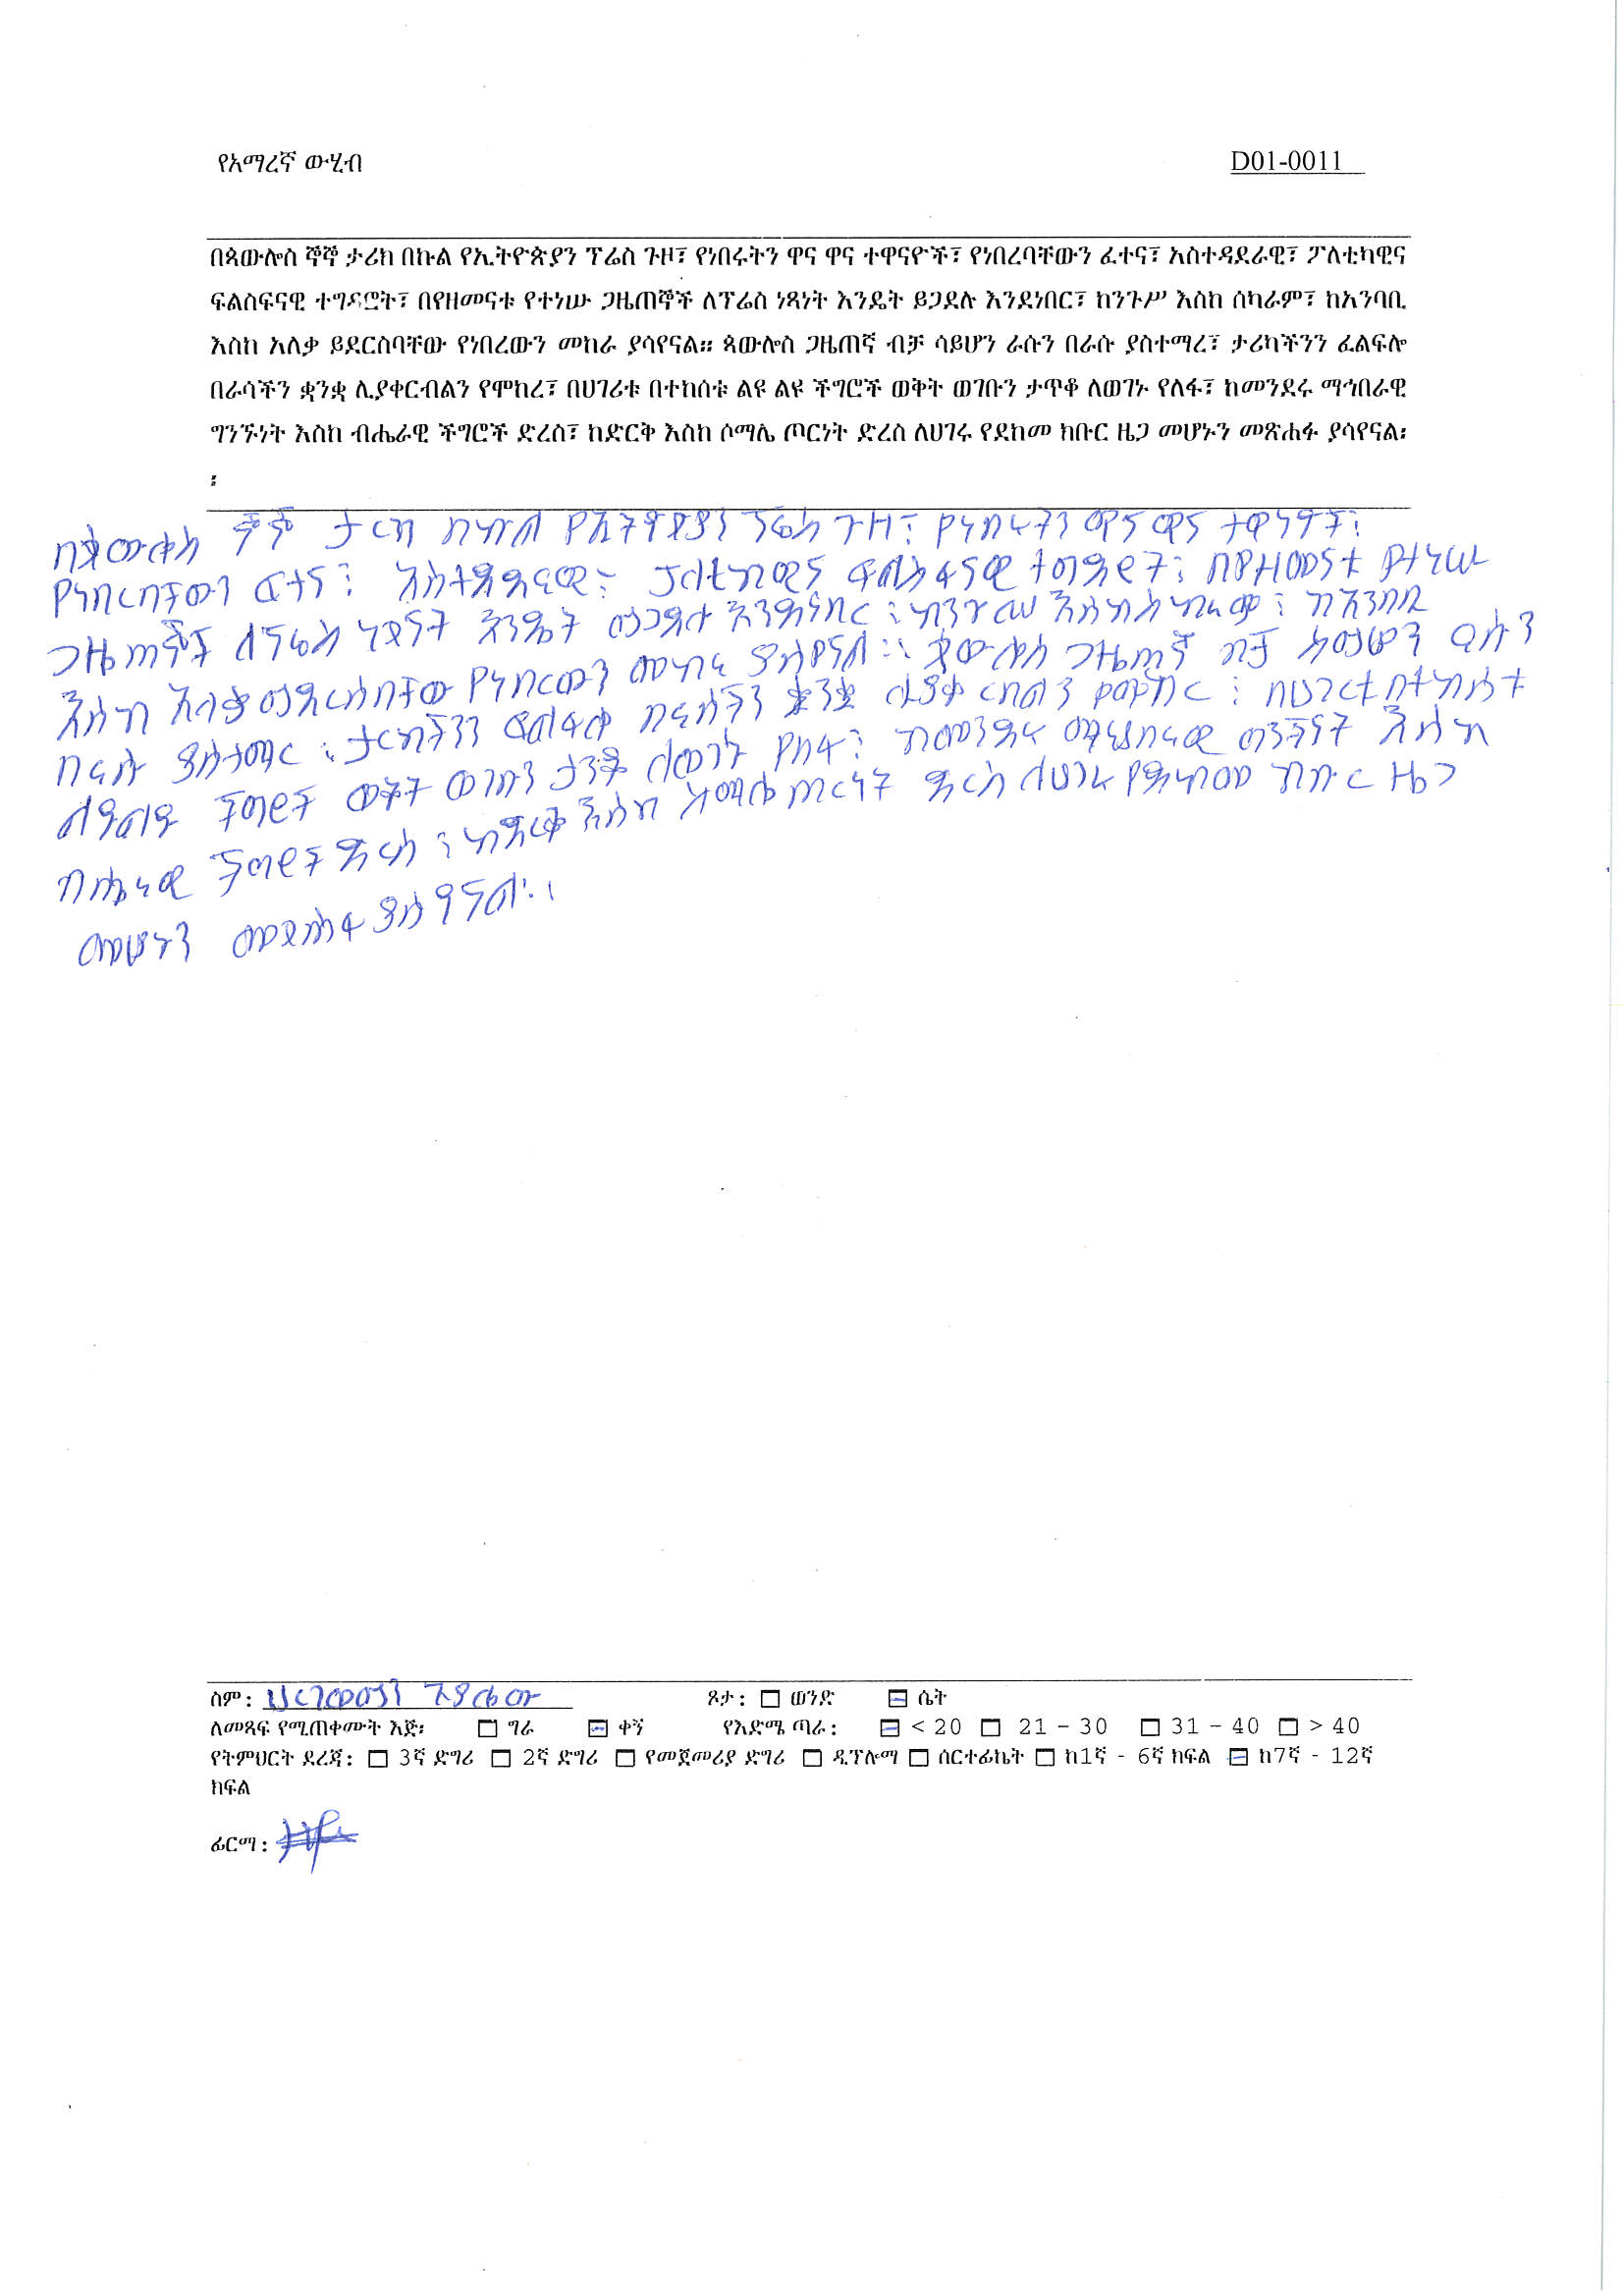 የአማረኛ ውሂብ D01-0011
በጳውሎስ ኞኞ ታሪክ በኩል የኢትዮጵያን ፕሬስ ጉዞ፣ የነበሩትን ዋና ዋና ተዋናዮች፣ የነበረባቸውን ፈተና፣ አስተዳደራዊ፣ ፖለቲካዊና
ፍልስፍናዊ ተግዳሮት፣ በየዘመናቱ የተነሡ ጋዜጠኞች ለፕሬስ ነጻነት እንዴት ይጋደሉ እንደነበር፣ ከንጉሥ እስከ ሰካራም፣ ከአንባቢ
እስከ አለቃ ይደርስባቸው የነበረውን መከራ ያሳየናል። ጳውሎስ ጋዜጠኛ ብቻ ሳይሆን ራሱን በራሱ ያስተማረ፣ ታሪካችንን ፈልፍሎ
በራሳችን ቋንቋ ሊያቀርብልን የሞከረ፣ በሀገሪቱ በተከሰቱ ልዩ ልዩ ችግሮች ወቅት ወገቡን ታጥቆ ለወገኑ የለፋ፣ ከመንደሩ ማኅበራዊ
ግንኙነት እስከ ብሔራዊ ችግሮች ድረስ፣ ከድርቅ እስከ ሶማሌ ጦርነት ድረስ ለሀገሩ የደከመ ክቡር ዜጋ መሆኑን መጽሐፉ ያሳየናል፡
፡
በጳውሎስ ኞኞ ታርክ በኩል የኢትዮጵያን ፕሬስ ጉዞ፣ የነበሩትን ዋና ዋና ተዋናዮች፣
የነበረባቸውን ፈተና፣ አስተዳደራዊ፣ ፖለቲካዊና ፍልስፍናዊ ተግዳሮት፣ በየዘመናቱ የተነሡ
ጋዜጠኞች ለፕሬስ ነጻነት እንዴት ይጋደሉ እንደነበር፣ ከንጉሥ እስከ ሰካራም፣ ከአንባቢ
እስከ አለቃ ይደርስባቸው የነበረውን መከራ ያሳየናል። ጳውሎስ ጋዜጠኛ ብቻ ሳይሆን ራሱን
በራሱ ያስተማረ፣ ታርካችንን ፈልፍሎ በራሳችን ቋንቋ ሊያቀርብልን የሞከረ፣ በሀገሪቱ በተከሰቱ
ልዩልዩ ችግሮች ወቅት ወገቡን ታጥቆ ለወገኑ የለፋ፣ ከመንደሩ ማኅበራዊ ግንኙነት እስከ
ብሔራዊ ችግሮች ድረስ፣ ከድርቅ እስከ ሶማሌ ጦርነት ድረስ ለሀገሩ የደከመ ክቡር ዜጋ
መሆኑን መጽሐፉ ያሳየናል።
ስም: ጾታ: ወንድ ሴት
ለመጻፍ የሚጠቀሙት እጅ፡ ግራ ቀኝ የእድሜ ጣራ: < 20 21 - 30 31 - 40 > 40
የትምህርት ደረጃ: 3ኛ ድግሪ 2ኛ ድግሪ የመጀመሪያ ድግሪ ዲፕሎማ ሰርተፊኬት ከ1ኛ - 6ኛ ክፍል ከ7ኛ - 12ኛ
ክፍል
ፊርማ: